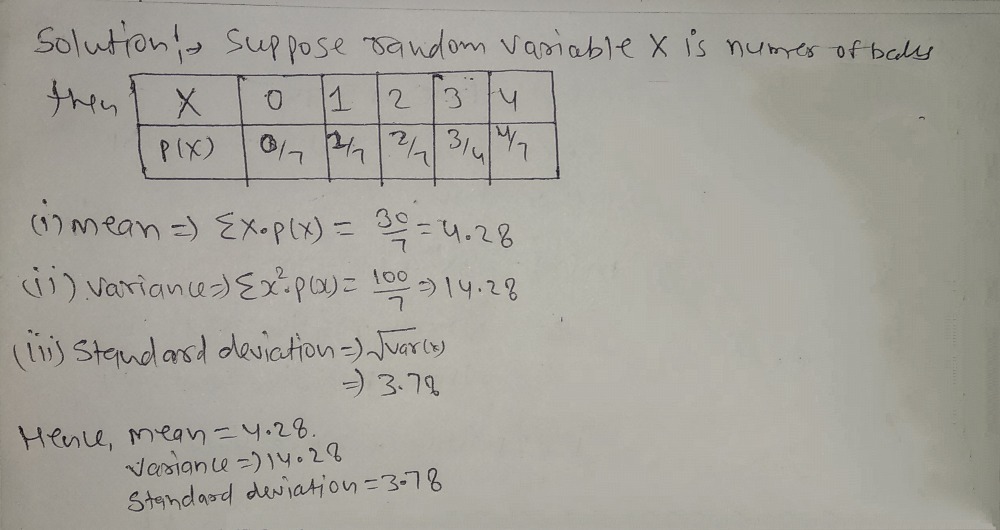 Solution:→ Suppose random variable X is numer of balls
then X 0 1 2 3 4
P(X) 0/7 1/7 2/7 3/4 4/7
(i) mean ⇒ ΣX•p(x) = 30/7 = 4.28
(ii) variance ⇒ Σx²•p(x) = 100/7 ⇒ 14.28
(iii) Standard deviation ⇒ √var(x)
⇒ 3.78
Hence, mean = 4.28.
variance ⇒ 14.28
Standard deviation = 3.78